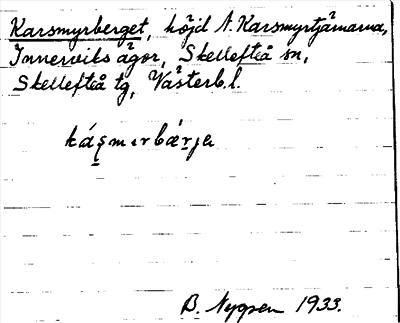 Karsmyrberget, höjd N. Karsmyrtjärnarna,
Innerviks ägor, Skellefteå sn,
Skellefteå tg, Västerb.l.
B. Nygren 1933.